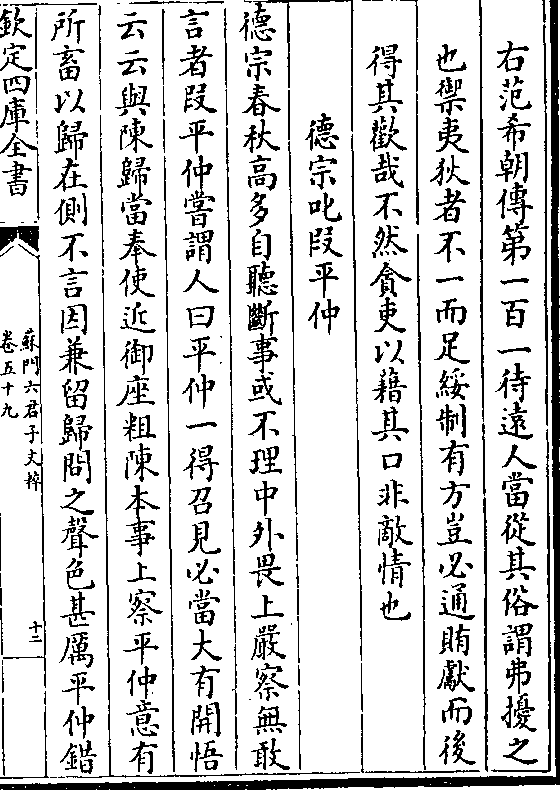 右范希朝傳第一百一待遠人當從其俗謂弗擾之
也禦夷狄者不一而足綏制有方豈必通賄獻而後
得其歡哉不然貪吏以藉其口非敵情也
德宗叱段平仲
德宗春秋高多自聽斷事或不理中外畏上嚴察無敢
言者段平仲嘗謂人曰平仲一得召見必當大有開悟
云云與陳歸當奉使近御座粗陳本事上察平仲意有
所畜以歸在側不言因兼留歸問之聲色甚厲平仲錯
欽定四庫全書
蘇門六君子文粹
卷五十九
十二